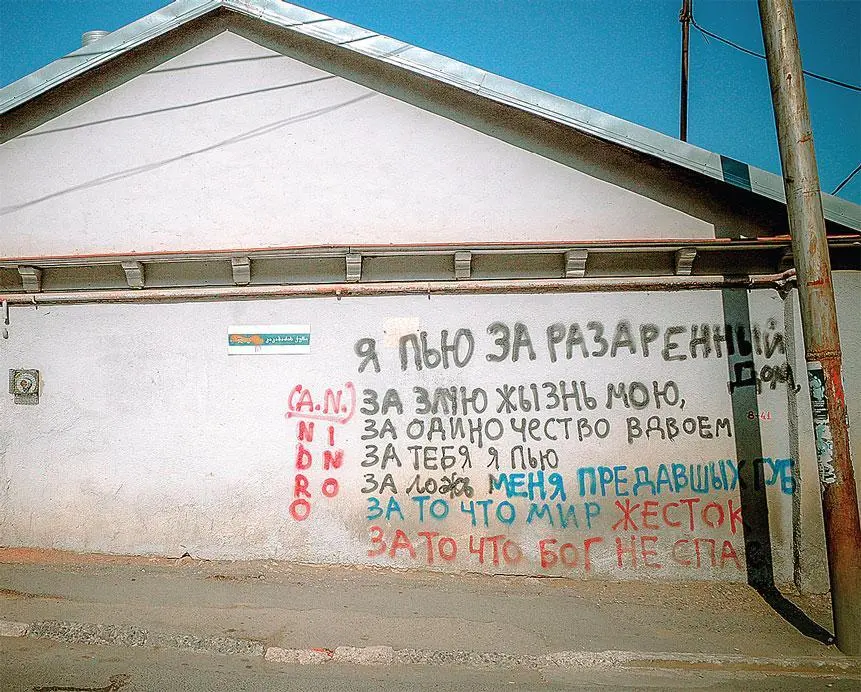 Я ПЬЮ ЗА РАЗАРЕННЫЙ
ДОМ,
(A.N.) ЗА ЗЛУЮ ЖЫЗНЬ МОЮ,
8-41
N I ЗА ОДИНОЧЕСТВО ВДВОЕМ
D N ЗА ТЕБЯ Я ПЬЮ
R O ЗА ЛОЖЪ МЕНЯ ПРЕДАВШЫХ ГУБ
O ЗА ТО ЧТО МИР ЖЕСТОК
ЗА ТО ЧТО БОГ НЕ СПАС